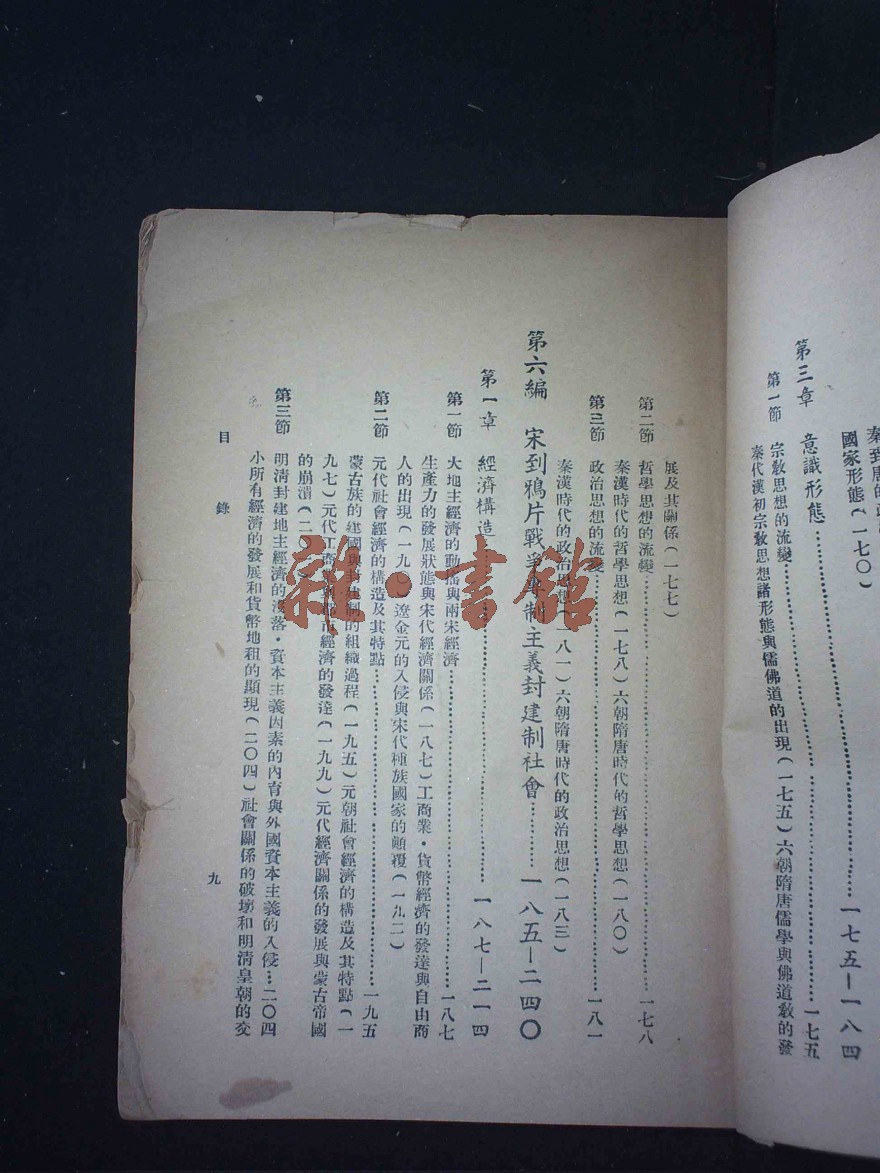 秦到唐的政
國家形態(一七〇)
第三章 意識形態……一七五—一八四
第一節 宗敎思想的流變……一七五
秦代漢初宗敎思想諸形態與儒佛道的出現(一七五)六朝隋唐儒學與佛道敎的發
展及其關係(一七七)
第二節 哲學思想的流變……一七八
秦漢時代的哲學思想(一七八)六朝隋唐時代的哲學思想(一八〇)
第三節 政治思想的流變……一八一
秦漢時代的政治思想(一八一)六朝隋唐時代的政治思想(一八三)
第六編 宋到鴉片戰爭專制主義封建制社會……一八五—二四〇
第一章 經濟構造……一八七—二一四
第一節 大地主經濟的動搖與兩宋經濟……一八七
生產力的發展狀態與宋代經濟關係(一八七)工商業·貨幣經濟的發達與自由商
人的出現(一九〇)遼金元的入侵與宋代種族國家的顛覆(一九二)
第二節 元代社會經濟的構造及其特點……一九五
蒙古族的建國與封建制的組織過程(一九五)元朝社會經濟的構造及其特點(一
九七)元代工商業與都市經濟的發達(一九九)元代經濟關係的發展與蒙古帝國
的崩潰(二〇
第三節 明淸封建地主經濟的沒落·資本主義因素的內育與外國資本主義的入侵…二〇四
小所有經濟的發展和貨幣地租的顯現(二〇四)社會關係的破壞和明淸皇朝的交
目錄
九
雜·書館